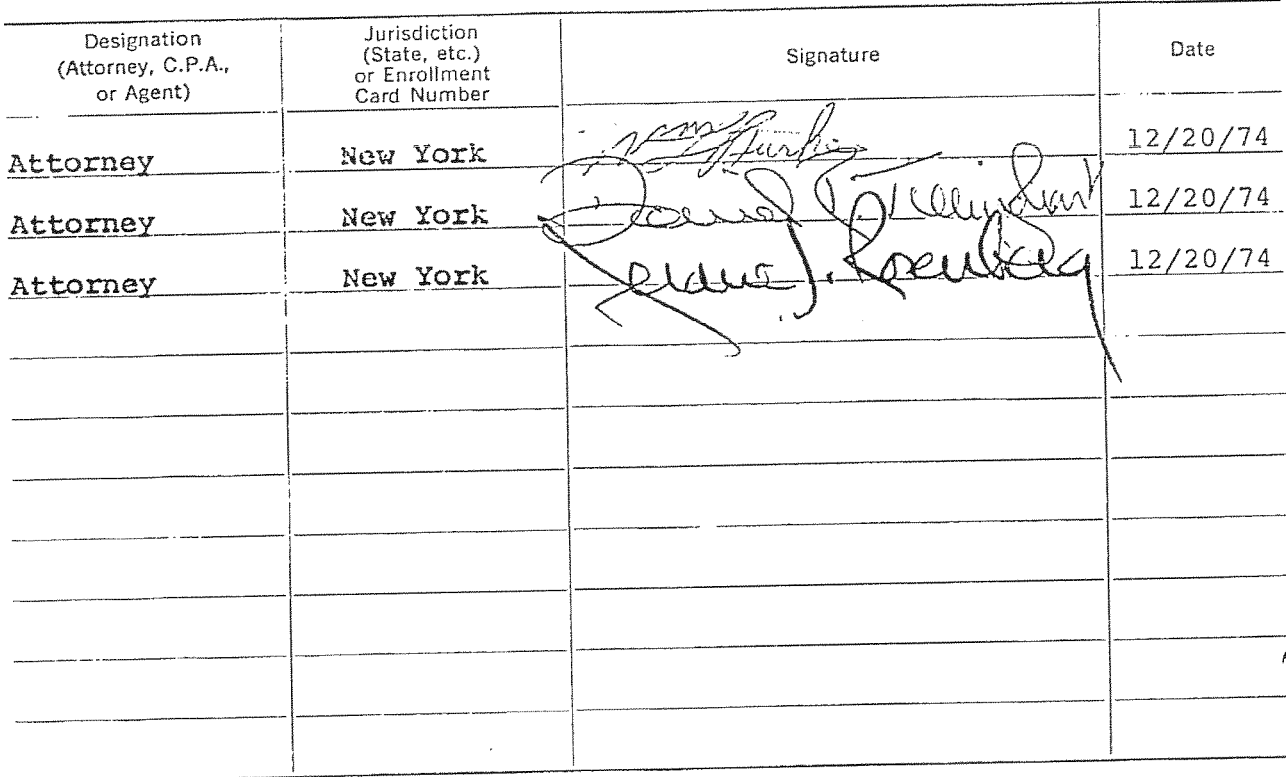 Designation
(Attorney, C.P.A.,
or Agent)
Jurisdiction
(State, etc.)
or Enrollment
Card Number
Signature
Date
Attorney New York 12/20/74
Attorney New York 12/20/74
Attorney New York J. Rosenberg 12/20/74